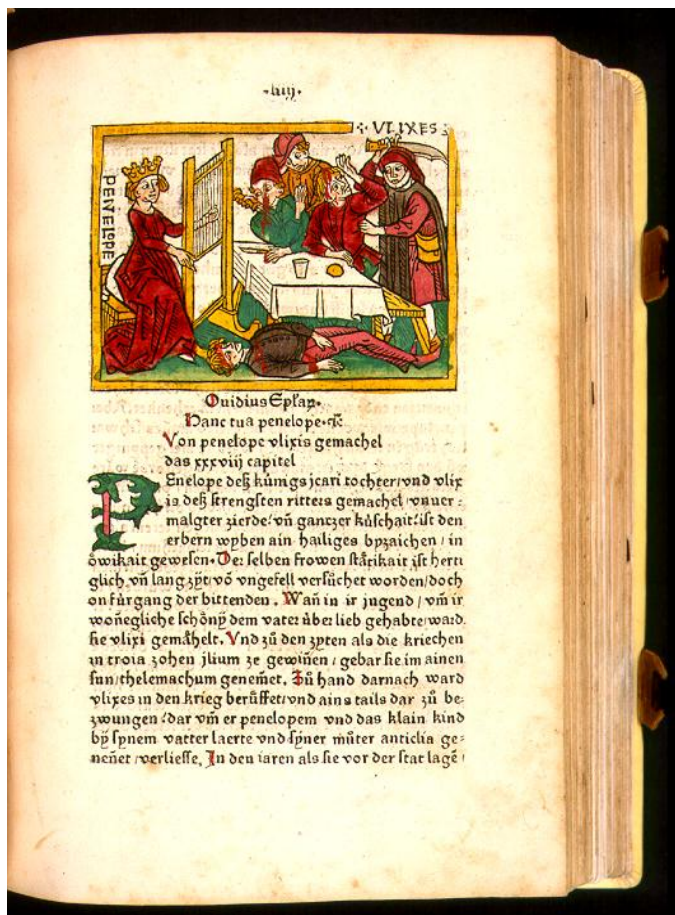 ·liij·
VLIXES
PENELOPE
Ouidius Epłaꝝ.
Hanc tua penelope·ꝛc̄
Von penelope vlixis gemachel
das xxxviij capitel
PEnelope deß kúnigs jcari tochter/vnd vlix
is deß strengsten ritters gemachel/vnuer⸗
malgter zierde/vn̄ gantzer kúschait/ist den
erbern wyben ain hailiges byzaichen/in
ôwikait gewesen. Der selben frowen stårikait ist herti
glich vn̄ lang zyt/vō vngefell versůchet worden/doch
on fúrgang der bittenden. Wan̄ in ir jugend/vm̄ ir
won̄egliche schôny dem vater úber lieb gehabte/ward
sie vlixi gemåhelt. Vnd zů den zyten als die kriechen
in troia zohen jlium ze gewin̄en/gebar sie im ainen
sun/thelemachum genem̄et. Zů hand darnach ward
vlixes in den krieg berůffet/vnd ains tails dar zů be⸗
zwungen/dar vm̄ er penelopem vnd das klain kind
by synem vatter laerte vnd syner můter anticlia ge⸗
nen̄et/verliesse. In den iaren als sie vor der stat lagē/